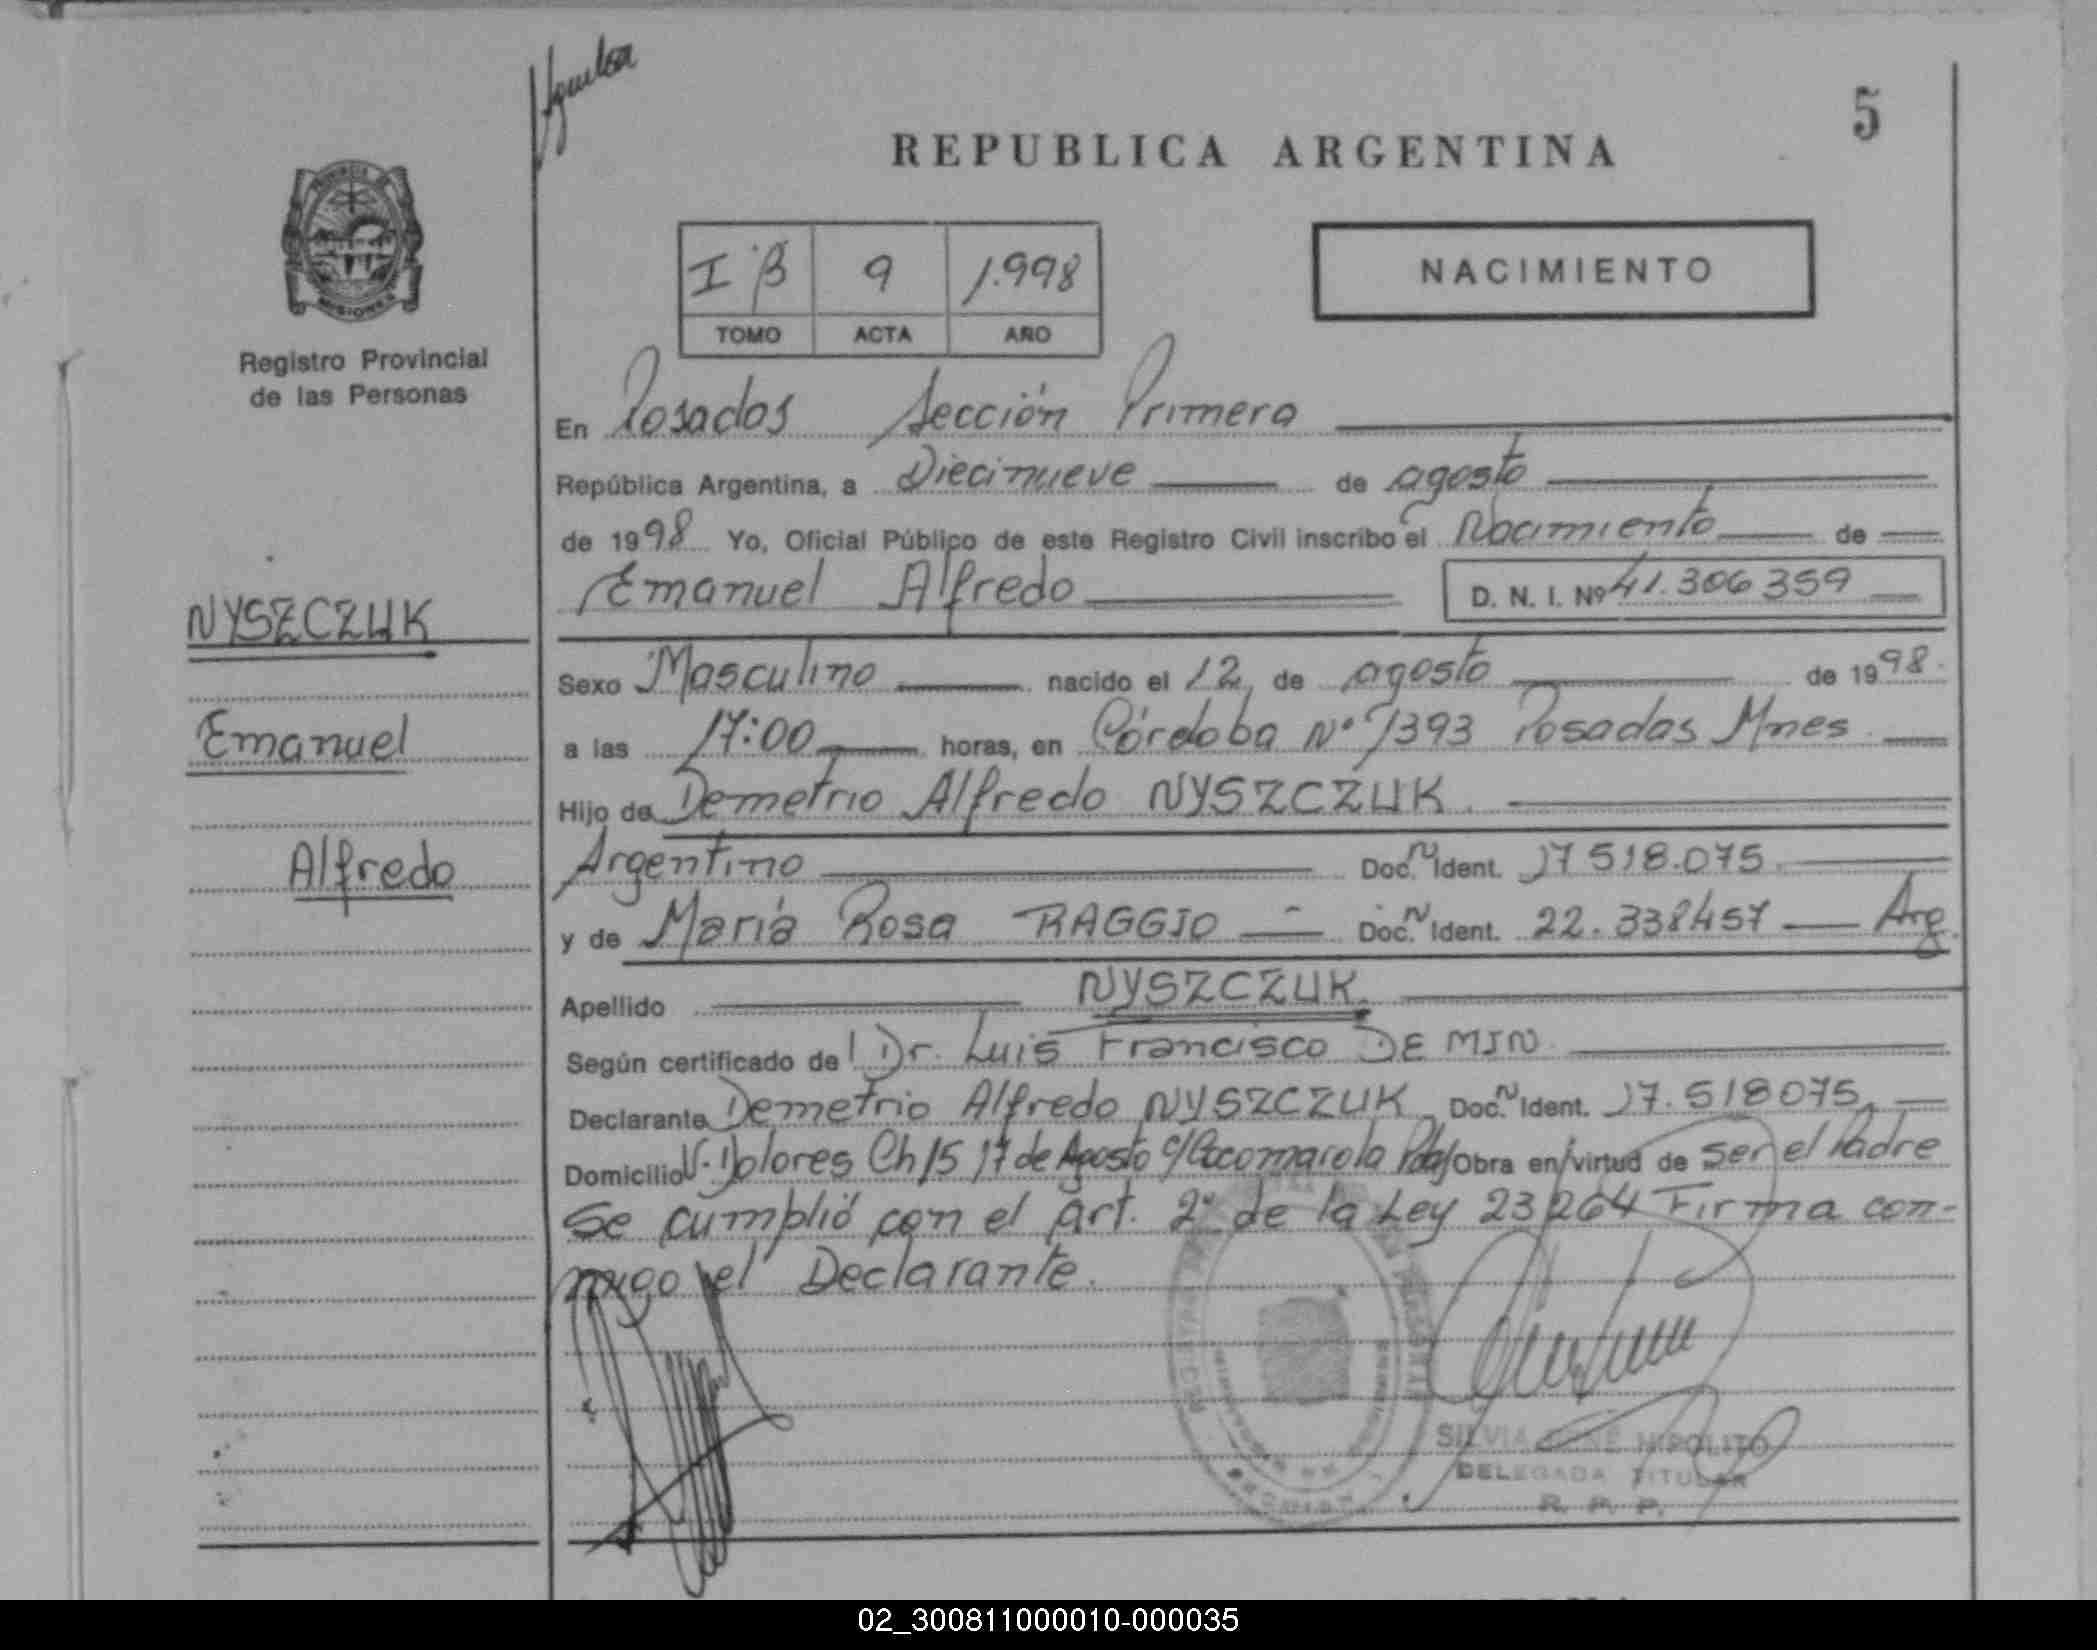 5
REPUBLICA ARGENTINA
I B 9 1.998
TOMO ACTA AÑO
NACIMIENTO
MISIONES
Registro Provincial
de las Personas
En Posadas Sección Primera
República Argentina, a Diecinueve de agosto
de 1998 Yo, Oficial Público de este Registro Civil inscribo el Nacimiento de
Emanuel Alfredo D. N. I. Nº 41.306359
NYSZCZUK
Sexo Masculino nacido el 12 de agosto de 1998.
Emanuel
a las 17:00 horas, en Córdoba Nº 1393 Posadas Mnes.
Hijo de Demetrio Alfredo NYSZCZUK.
Alfredo
Argentino Doc. N Ident. 17518.075.
y de María Rosa RAGGIO Doc. N Ident. 22.338457 Arg.
Apellido NYSZCZUK.
Según certificado de Dr. Luis Francisco DE MIN
Declarante Demetrio Alfredo NYSZCZUK Doc. N Ident. 17.518075
Domicilio V. Dolores Ch 15 17 de Agosto c/ Cocomarola Pdas Obra en virtud de ser el Padre
Se cumplió con el art. 2º de la Ley 23264 Firma con-
migo el Declarante.
SILVIA HIPOLITO
DELEGADA TITULAR
R. P. P.
02_300811000010-000035